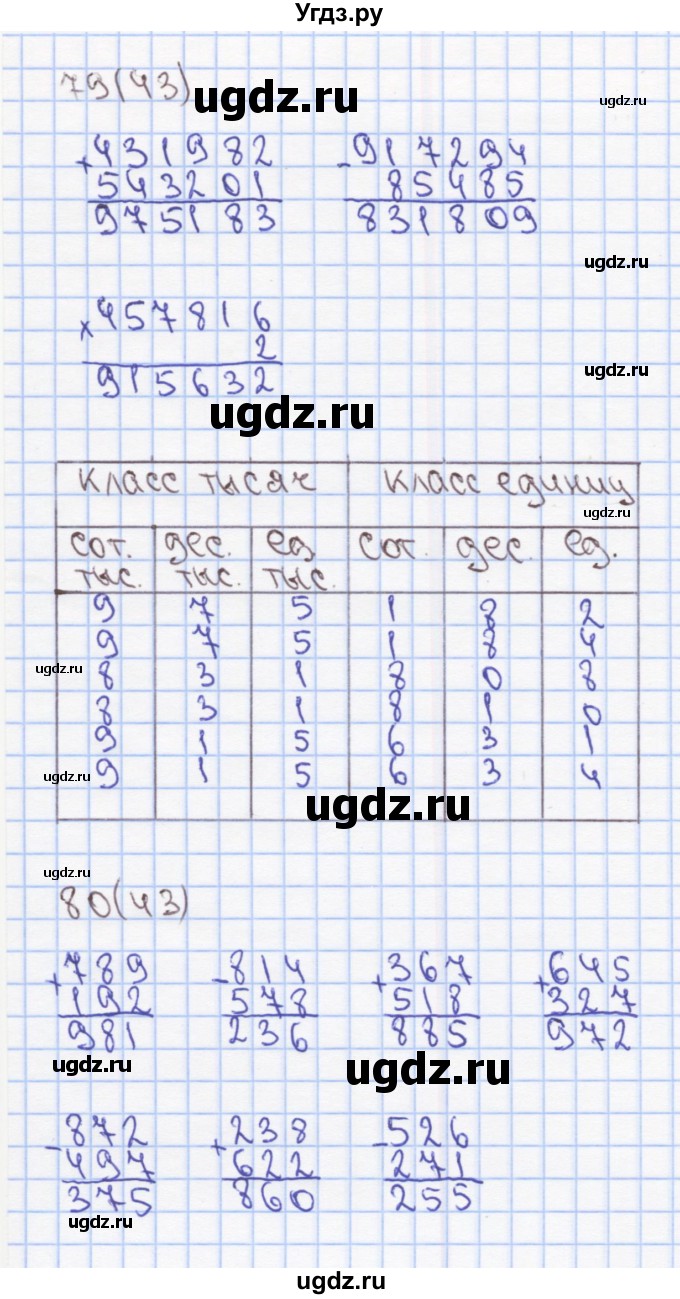 Угдз.ру
79(43)
ugdz.ru
ugdz.ru
+431982 -917294
543201 85485
975183 831809
ugdz.ru
×457816
2
915632
ugdz.ru
ugdz.ru
Класс тысяч Класс единиц
ugdz.ru
сот. тыс. дес. тыс. ед. тыс. сот. дес. ед.
9 7 5 1 8 2
9 7 5 1 8 4
ugdz.ru
8 3 1 8 0 8
8 3 1 8 1 0
9 1 5 6 3 1
9 1 5 6 3 4
ugdz.ru
ugdz.ru
ugdz.ru
80(43)
+789 -814 +367 +645
192 578 518 327
981 236 885 972
ugdz.ru
ugdz.ru
-872 +238 -526
497 622 271
375 860 255
ugdz.ru
ugdz.ru